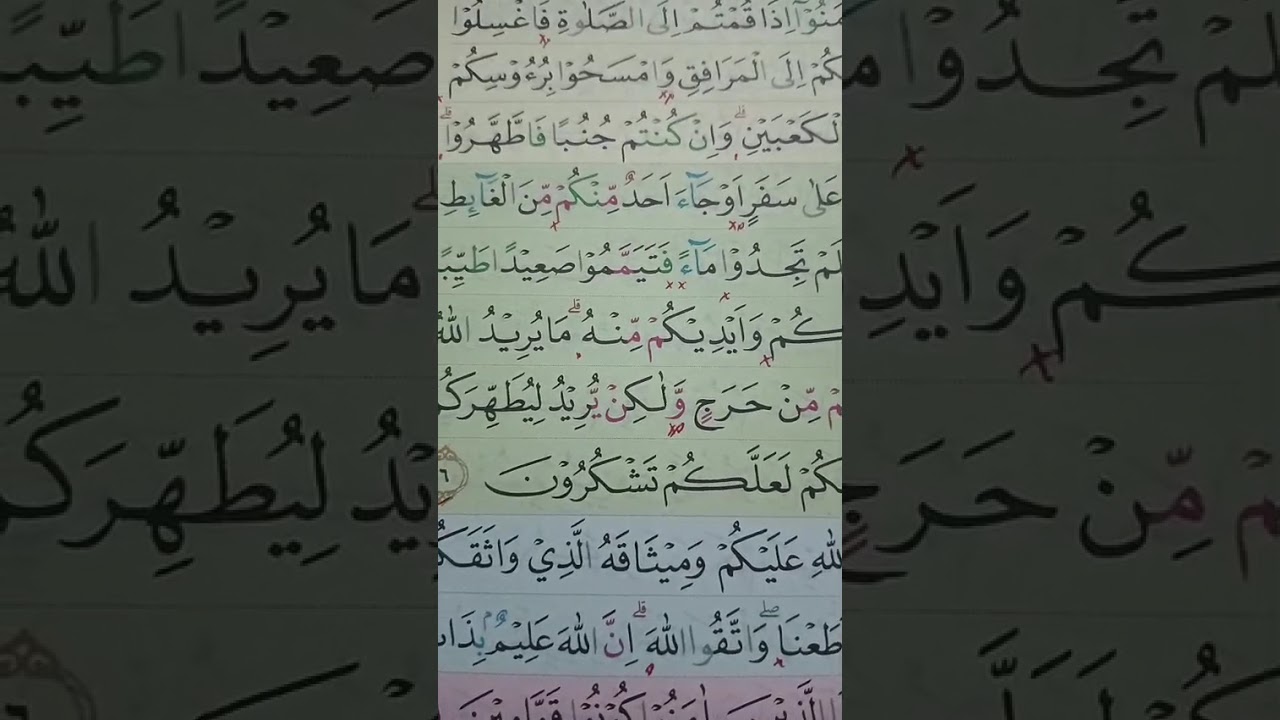 مَنُوْٓا اِذَا قُمْتُمْ اِلَى الصَّلٰوةِ فَاغْسِلُوْا
كُمْ اِلَى الْمَرَافِقِ وَامْسَحُوْا بِرُءُوْسِكُمْ
لْكَعْبَيْنِۗ وَاِنْ كُنْتُمْ جُنُبًا فَاطَّهَّرُوْاۗ
عَلٰى سَفَرٍ اَوْ جَاۤءَ اَحَدٌ مِّنْكُمْ مِّنَ الْغَاۤىِٕطِ
لَمْ تَجِدُوْا مَاۤءً فَتَيَمَّمُوْا صَعِيْدًا طَيِّبًا
كُمْ وَاَيْدِيْكُمْ مِّنْهُۗ مَا يُرِيْدُ اللّٰهُ
مْ مِّنْ حَرَجٍ وَّلٰكِنْ يُّرِيْدُ لِيُطَهِّرَكُمْ
يْكُمْ لَعَلَّكُمْ تَشْكُرُوْنَ ٦
للّٰهِ عَلَيْكُمْ وَمِيْثَاقَهُ الَّذِيْ وَاثَقَكُ
طَعْنَاۖ وَاتَّقُوا اللّٰهَۗ اِنَّ اللّٰهَ عَلِيْمٌۢ بِذَاتِ
ا الَّذِيْنَ اٰمَنُوْا كُوْنُوْا قَوَّامِيْنَ